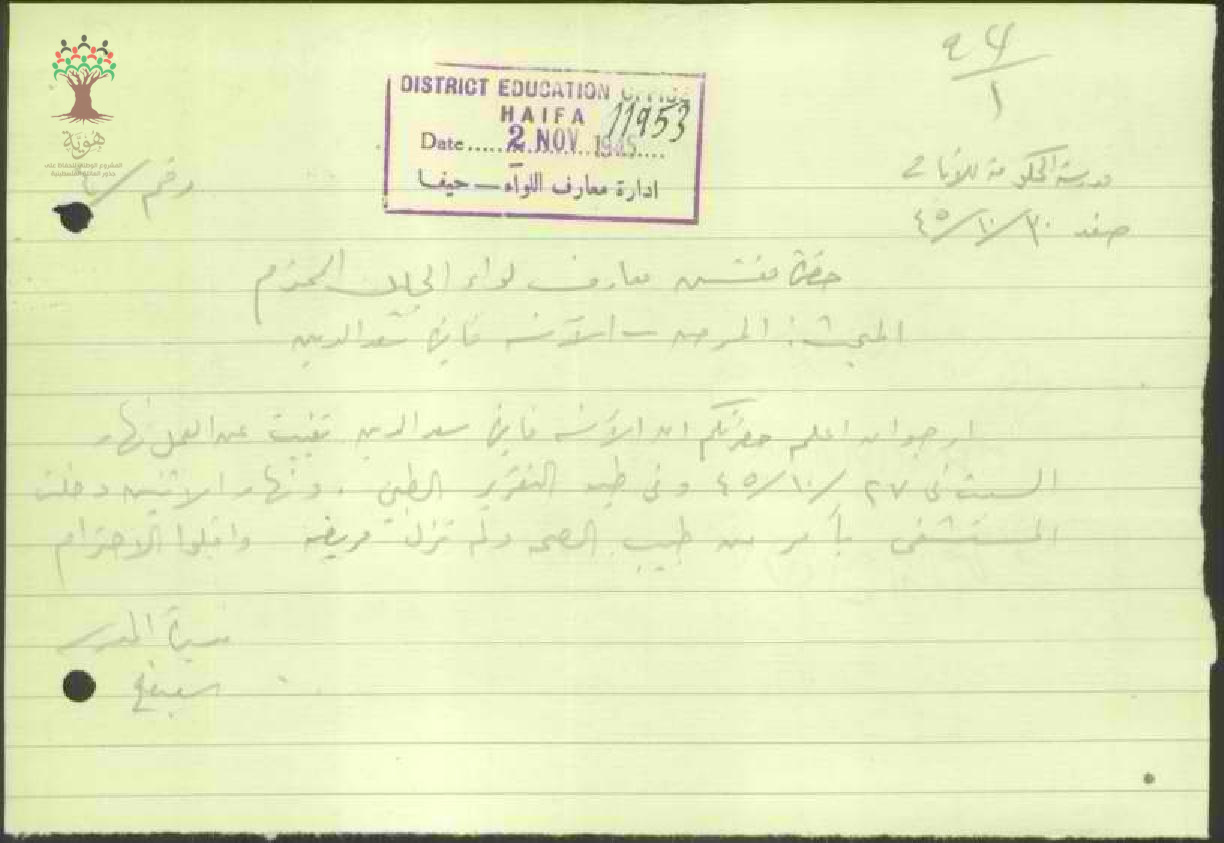 ٩٤
١
DISTRICT EDUCATION OFFICE
HAIFA
11953
Date ..... 2 NOV 1945 .....
ادارة معارف اللواء – حيفا
هُويّة
المشروع الوطني للحفاظ على
جذور العائلة الفلسطينية
مدرسة الحكومة للاناث
رقم /
صفد ٣٠/١٠/٤٥
حضرة مفتش معارف لواء الجليل المحترم
المبحث : المرض – الآنسة فايزة سعد الدين
ارجو ان اعلم حضرتكم ان الآنسة فايزة سعد الدين تغيبت عن العمل نهار
السبت في ٢٧/١٠/٤٥ وفي طيه التقرير الطبي . ونهار الاثنين دخلت
المستشفى بأمر من طبيب الصحة ولم تزل مريضة واقبلوا الاحترام
مديرة المدرسة